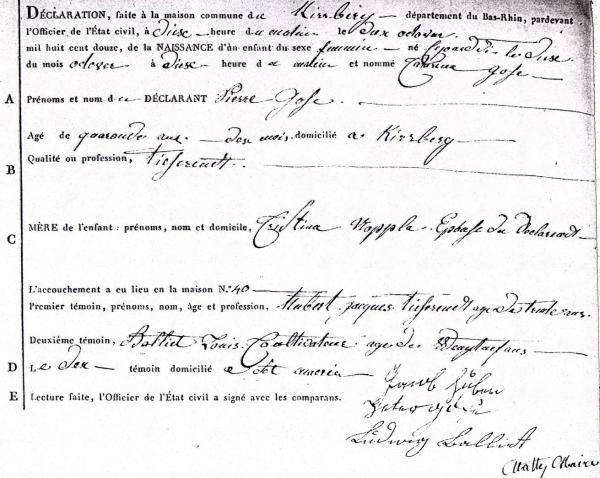 DÉCLARATION, faite à la maison commune du Kirrberg département du Bas-Rhin, pardevant
l'Officier de l'État civil, à Dixe heure du matin le dix octover
mil huit cent douze, de la NAISSANCE d'un enfant du sexe feminin né le Dixe
du mois octover à Dixe heure du matin et nommé Gose
A Prénoms et nom du DÉCLARANT Pierre Gose
Agé de quarande ans deu mois domicilié a Kirrberg
B Qualité ou profession, tisserendt
C MÈRE de l'enfant : prénoms, nom et domicile, Cristina Epouse du Declarandt
L'accouchement a eu lieu en la maison N.º 40
Premier témoin, prénoms, nom, âge et profession, jacques tisserendt age de trente ans
Deuxième témoin, Balliet Louis Cultivateur age de
D Le témoin domicilié
E Lecture faite, l'Officier de l'État civil a signé avec les comparans.
Jacob Huber
Peter
Ludwig Balliet
Maire